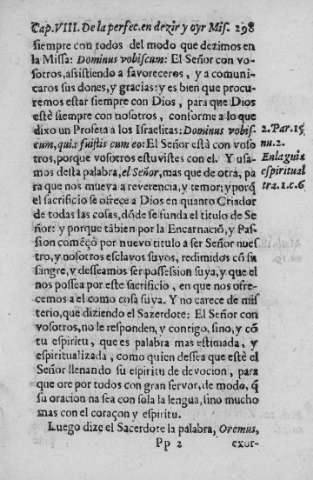 Cap. VIII. De la perfec. en dezir y oyr Mis. 298
siempre con todos del modo que dezimos en
la Missa: Dominus vobiscum: El Señor con vo-
sotros, assistiendo a favoreceros, y a comuni-
caros sus dones, y gracias: y es bien que procu-
remos estar siempre con Dios, para que Dios
estè siempre con nosotros, conforme a lo que
dixo un Profeta a los Israelitas: Dominus vobis-
cum, quia fuistis cum eo: El Señor està con voso
tros, porque vosotros estuvistes con el. Y usa-
mos desta palabra, el Señor, mas que de otra, pa
ra que nos mueva a reverencia, y temor; y porq̃
el sacrificio se ofrece a Dios en quanto Criador
de todas las cosas, dõde se funda el titulo de Se
ñor: y porque tãbien por la Encarnació, y Pas-
sion començò por nuevo titulo a ser Señor nues
tro, y nosotros esclavos suyos, redimidos cõ su
sangre, y desseamos ser possession suya, y que el
nos possea por este sacrificio, en que nos ofre-
cemos a el como cosa suya. Y no carece de mis
terio, que diziendo el Sazerdote: El Señor con
vosotros, no le responden, y contigo, sino, y cõ
tu espiritu, que es palabra mas estimada, y
espiritualizada, como quien dessea que estè el
Señor llenando su espiritu de devocion, para
que ore por todos con gran fervor, de modo, q̃
su oracion na sea con sola la lengua, sino mucho
mas con el coraçon y espiritu.
Luego dize el Sacerdote la palabra, Oremus,
Pp 2 exor-
2. Par. 15
nu. 2.
En la guia
espiritual
tra. 1. c. 6